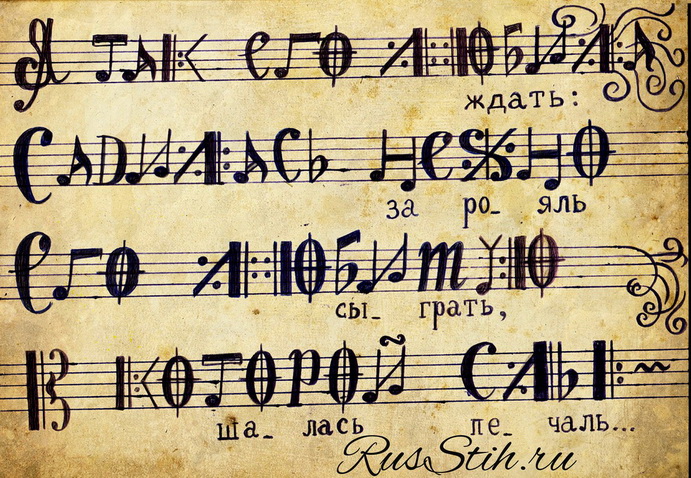 Я так его любила
ждать:
Садилась нежно
за ро_ яль
Его любимую
сы_ грать,
В которой слы~
ша_ лась пе_ чаль...
RusStih.ru